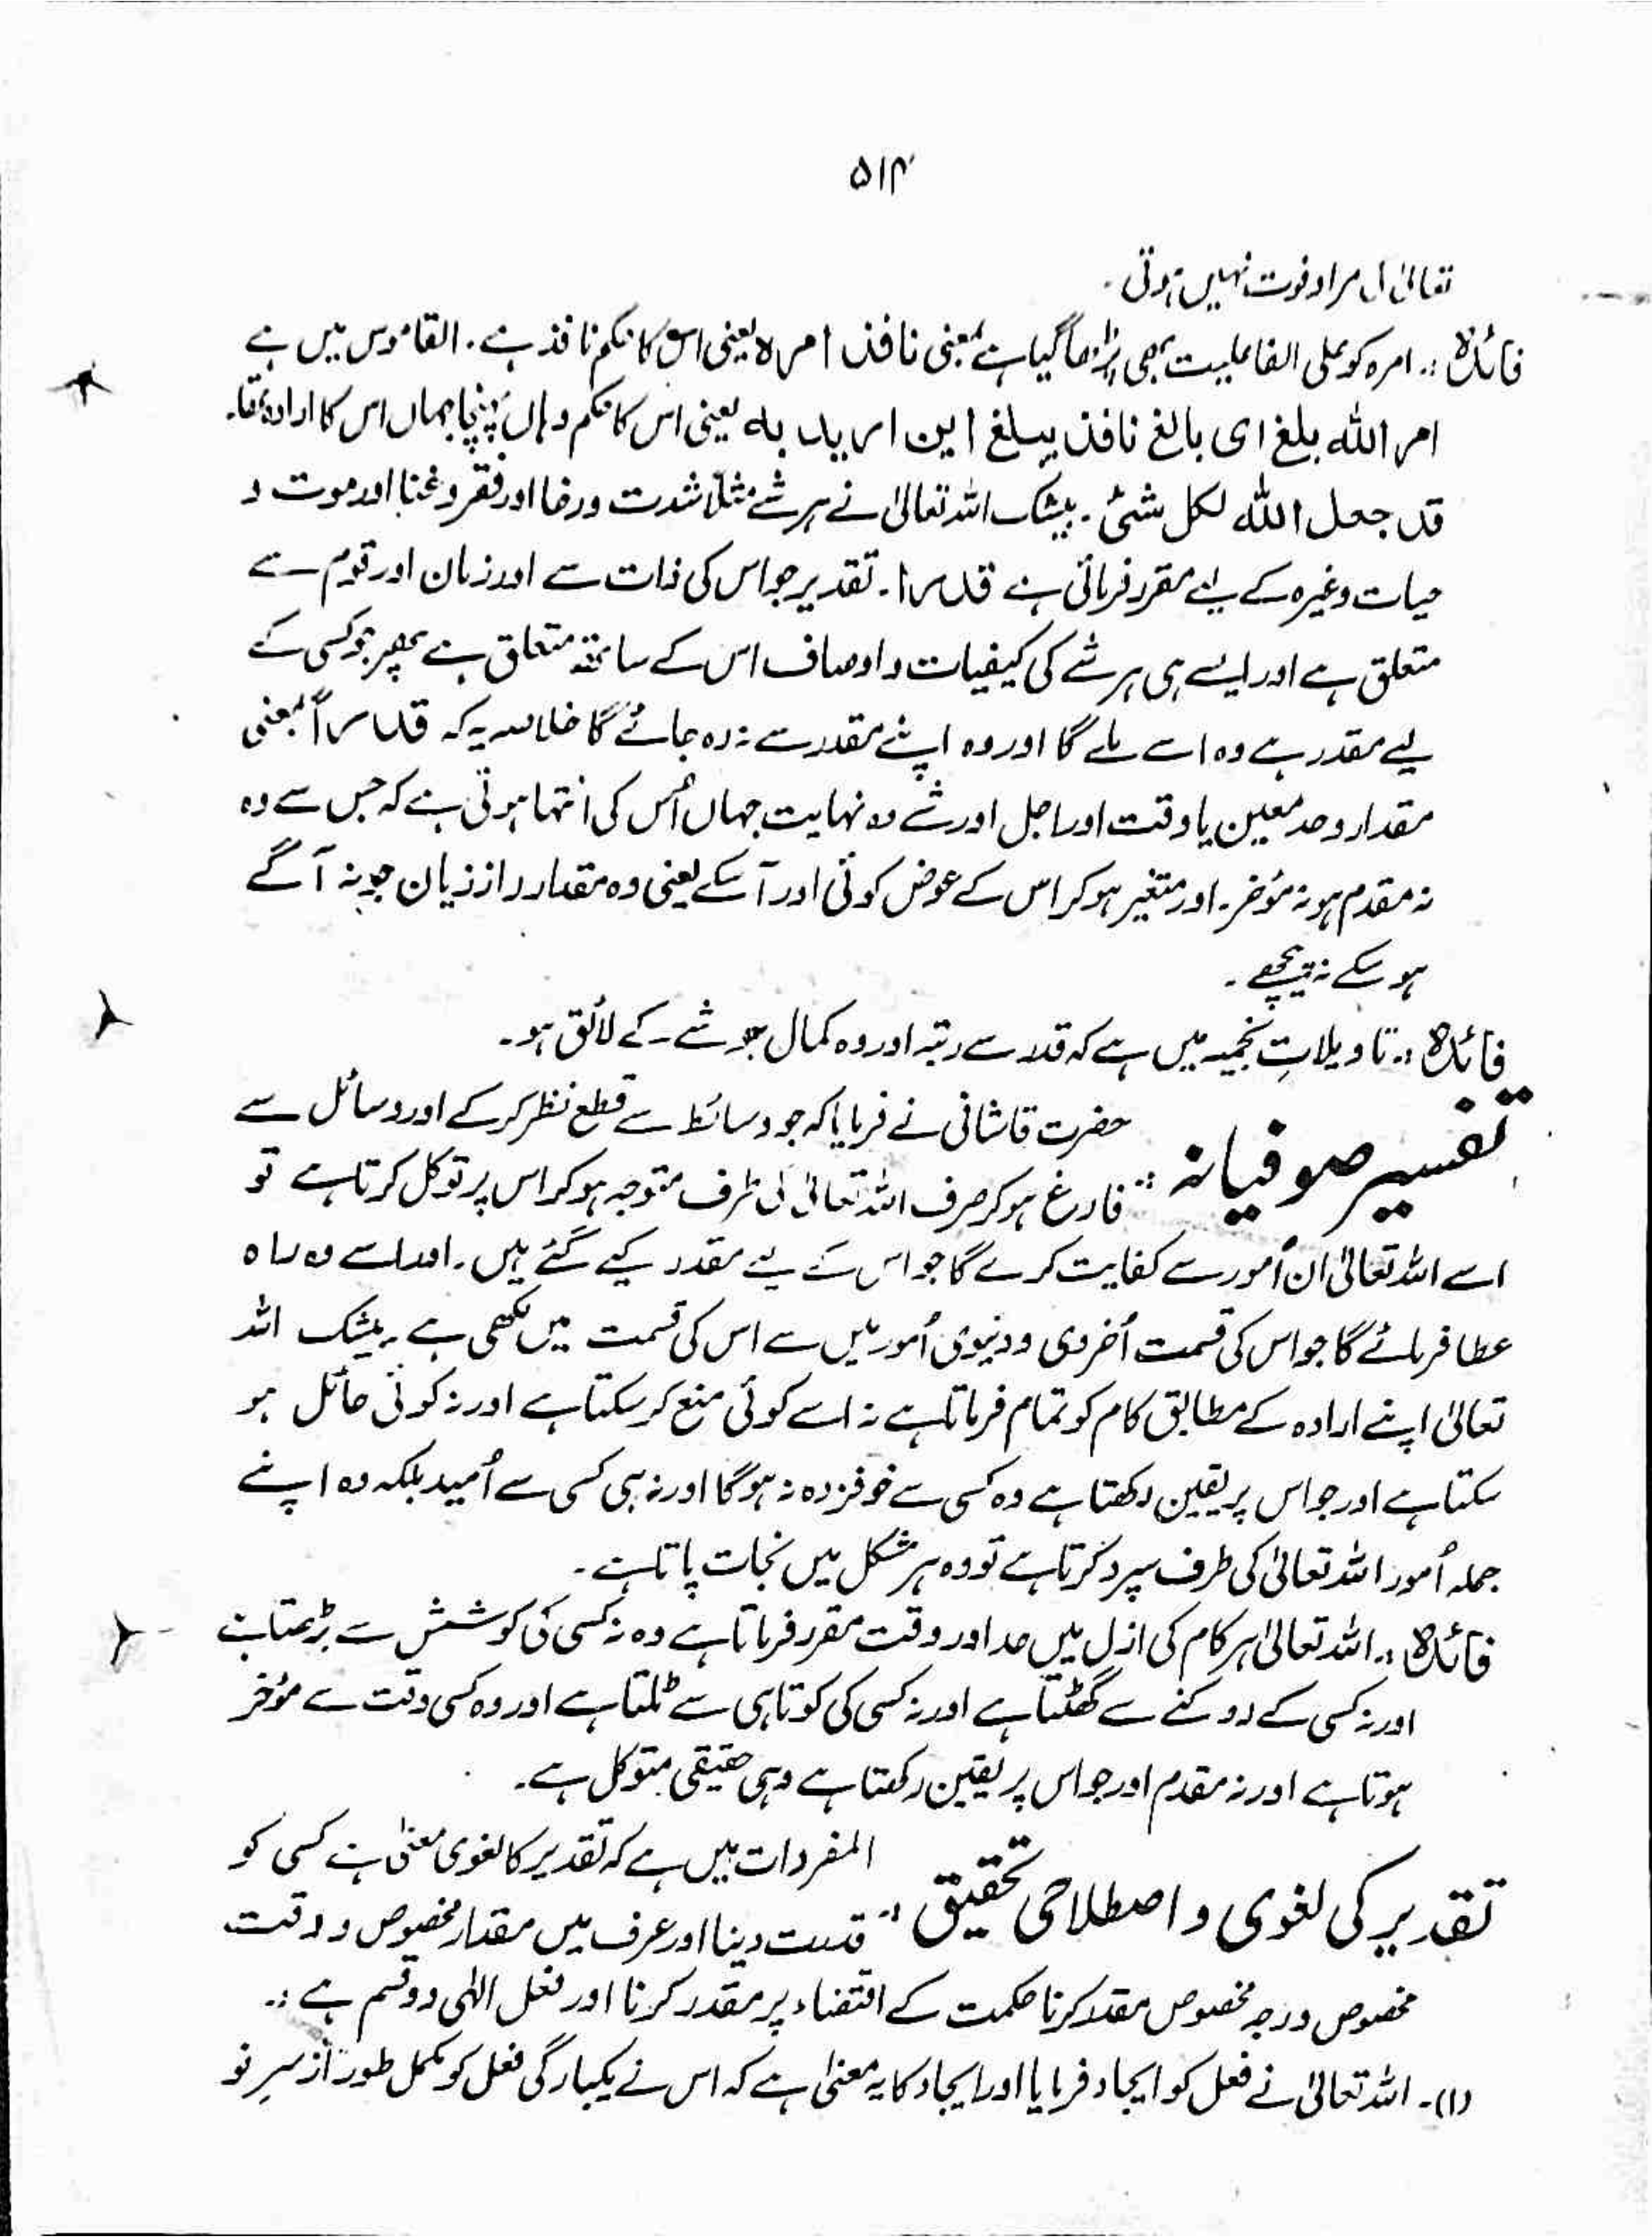 ۵۱۴
تعالیٰ ال مراد فوت نہیں ہوتی۔
فائدہ :۔ امرہ کو علی الفاعلیت بھی پڑھا گیا ہے بمعنی نافذ امرہ یعنی اس کا حکم نافذ ہے۔ القاموس میں ہے
امر اللہ بلغ ای بالغ نافذ یبلغ این ارید بہ یعنی اس کا حکم وہاں پہنچا جہاں اس کا ارادہ تھا۔
قد جعل اللہ لکل شئ۔ بیشک اللہ تعالیٰ نے ہر شے مثلاً شدت ورخا اور فقر و غنا اور موت و
حیات وغیرہ کے لیے مقرر فرمائی ہے قدرا۔ تقدیر جو اس کی ذات سے اور زمان اور قوم سے
متعلق ہے اور ایسے ہی ہر شے کی کیفیات و اوصاف اس کے ساتھ متعلق ہے پھر جو کسی کے
لیے مقدر ہے وہ اسے ملے گا اور وہ اپنے مقدر سے نہ رہ جائے گا خلاصہ یہ کہ قدراً بمعنی
مقدار و حد معین یا وقت اور اجل اور شے وہ نہایت جہاں اُس کی انتہا ہوتی ہے کہ جس سے وہ
نہ مقدم ہو نہ مؤخر۔ اور متغیر ہو کر اس کے عوض کوئی اور آسکے یعنی وہ مقدار راز زیان جو نہ آگے
ہو سکے نہ پیچھے۔
فائدہ :۔ تاویلاتِ نجمیہ میں ہے کہ قدر سے رتبہ اور وہ کمال جو شے کے لائق ہو۔
تفسیر صوفیانہ :: حضرت قاشانی نے فرمایا کہ جو وسائط سے قطع نظر کر کے اور وسائل سے
فارغ ہو کر صرف اللہ تعالیٰ کی طرف متوجہ ہو کر اس پر توکل کرتا ہے تو
اسے اللہ تعالیٰ ان اُمور سے کفایت کرے گا جو اس کے لیے مقدر کیے گئے ہیں۔ اور اسے وہ راہ
عطا فرمائے گا جو اس کی قسمت اُخروی و دنیوی اُمور میں سے اس کی قسمت میں لکھی ہے۔ بیشک اللہ
تعالیٰ اپنے ارادہ کے مطابق کام کو تمام فرماتا ہے نہ اسے کوئی منع کر سکتا ہے اور نہ کوئی حائل ہو
سکتا ہے اور جو اس پر یقین رکھتا ہے وہ کسی سے خوفزدہ نہ ہوگا اور نہ ہی کسی سے اُمید بلکہ وہ اپنے
جملہ اُمور اللہ تعالیٰ کی طرف سپرد کرتا ہے تو وہ ہر مشکل میں نجات پاتا ہے۔
فائدہ :۔ اللہ تعالیٰ ہر کام کی ازل میں حد اور وقت مقرر فرماتا ہے وہ نہ کسی کی کوشش سے بڑھتا ہے
اور نہ کسی کے روکنے سے گھٹتا ہے اور نہ کسی کی کوتاہی سے ٹلتا ہے اور وہ کسی وقت سے مؤخر
ہوتا ہے اور نہ مقدم اور جو اس پر یقین رکھتا ہے وہی حقیقی متوکل ہے۔
تقدیر کی لغوی و اصطلاحی تحقیق :: المفردات میں ہے کہ تقدیر کا لغوی معنیٰ ہے کسی کو
قدرت دینا اور عرف میں مقدار مخصوص و وقت
مخصوص ورجہ مخصوص مقدر کرنا حکمت کے اقتضاء پر مقدر کرنا اور فعل الٰہی دو قسم ہے :۔
(۱)۔ اللہ تعالیٰ نے فعل کو ایجاد فرمایا اور ایجاد کا یہ معنیٰ ہے کہ اس نے یکبارگی فعل کو مکمل طور از سرِ نو